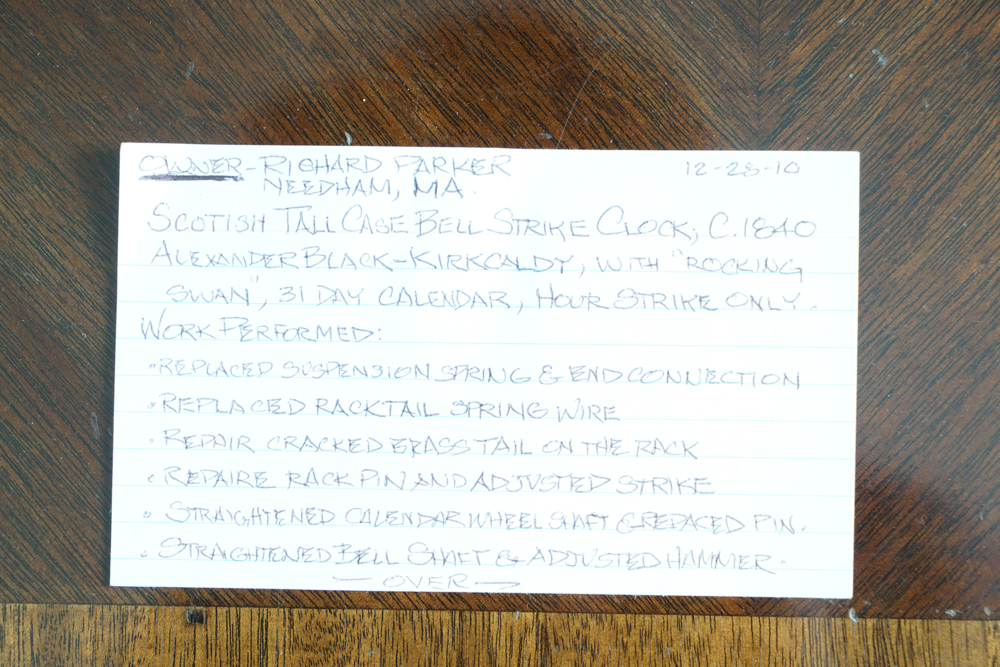 OWNER-RICHARD PARKER 12-28-10
NEEDHAM, MA.
SCOTISH TALL CASE BELL STRIKE CLOCK, C.1840
ALEXANDER BLACK-KIRKCALDY, WITH "ROCKING
SWAN", 31 DAY CALENDAR, HOUR STRIKE ONLY.
WORK PERFORMED:
• REPLACED SUSPENSION SPRING & END CONNECTION
• REPLACED RACKTAIL SPRING WIRE
• REPAIR CRACKED BRASS TAIL ON THE RACK
• REPAIRE RACK PIN AND ADJUSTED STRIKE
• STRAIGHTENED CALENDAR WHEEL SHAFT & REPACED PIN.
• STRAIGHTENED BELL SHAFT & ADJUSTED HAMMER.
— OVER →